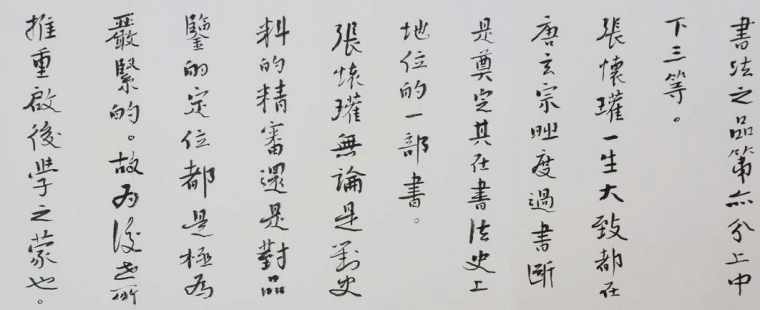 書法之品第亦分上中
下三等。
張懷瓘一生大致都在
唐玄宗時度過書斷
是奠定其在書法史上
地位的一部書。
張懷瓘無論是對史
料的精審還是對品
鑒的定位都是極為
嚴緊的。故為後世所
推重啟後學之蒙也。